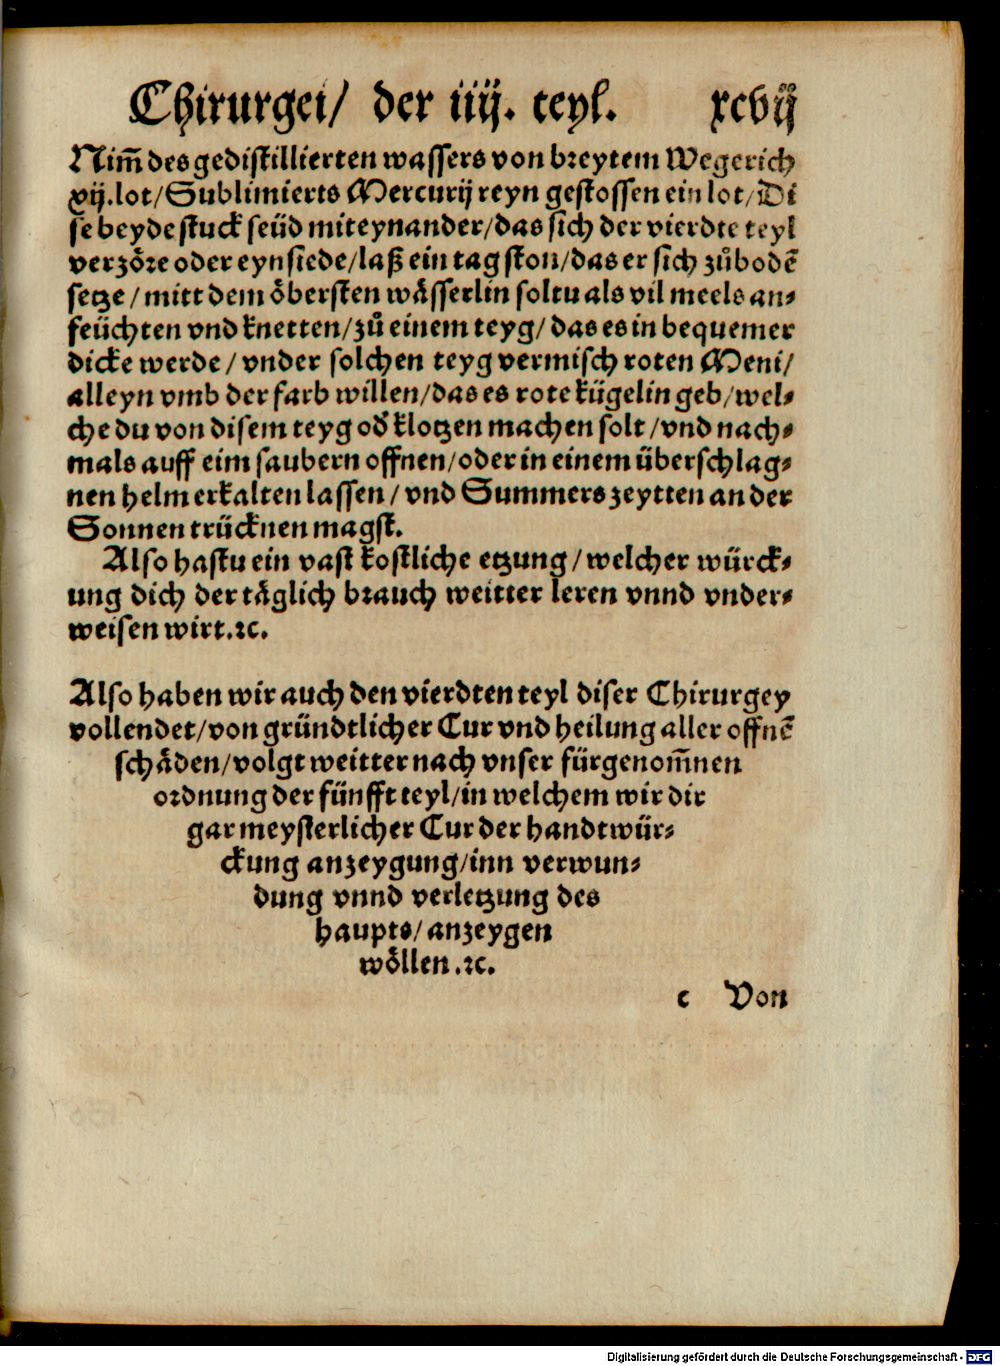 Chirurgei/ der iiij. teyl. xcvij
Nim̃ des gedistillierten wassers von breytem Wegerich
xij.lot/Sublimierts Mercurij reyn gestossen ein lot/Di
se beyde stuck seüd miteynander/das sich der vierdte teyl
verzöre oder eynsiede/laß ein tag ston/das er sich zůbodē
setze/mitt dem öbersten wässerlin soltu als vil meels an⸗
feüchten vnd knetten/zů einem teyg/das es in bequemer
dicke werde/vnder solchen teyg vermisch roten Meni/
alleyn vmb der farb willen/das es rote kügelin geb/wel⸗
che du von disem teyg od̕ klotzen machen solt/vnd nach⸗
mals auff eim saubern offnen/oder in einem überschlag⸗
nen helm erkalten lassen/vnd Summerszeytten an der
Sonnen trücknen magst.
Also hastu ein vast kostliche etzung/welcher würck⸗
ung dich der täglich brauch weitter leren vnnd vnder⸗
weisen wirt.ꝛc.
Also haben wir auch den vierdten teyl diser Chirurgey
vollendet/von gründtlicher Cur vnd heilung aller offnē
schäden/volgt weitter nach vnser fürgenom̃nen
ordnung der fünfft teyl/in welchem wir dir
gar meysterlicher Cur der handtwür⸗
ckung anzeygung/inn verwun⸗
dung vnnd verletzung des
haupts/anzeygen
wöllen.ꝛc.
c Von
Digitalisierung gefördert durch die Deutsche Forschungsgemeinschaft - DFG